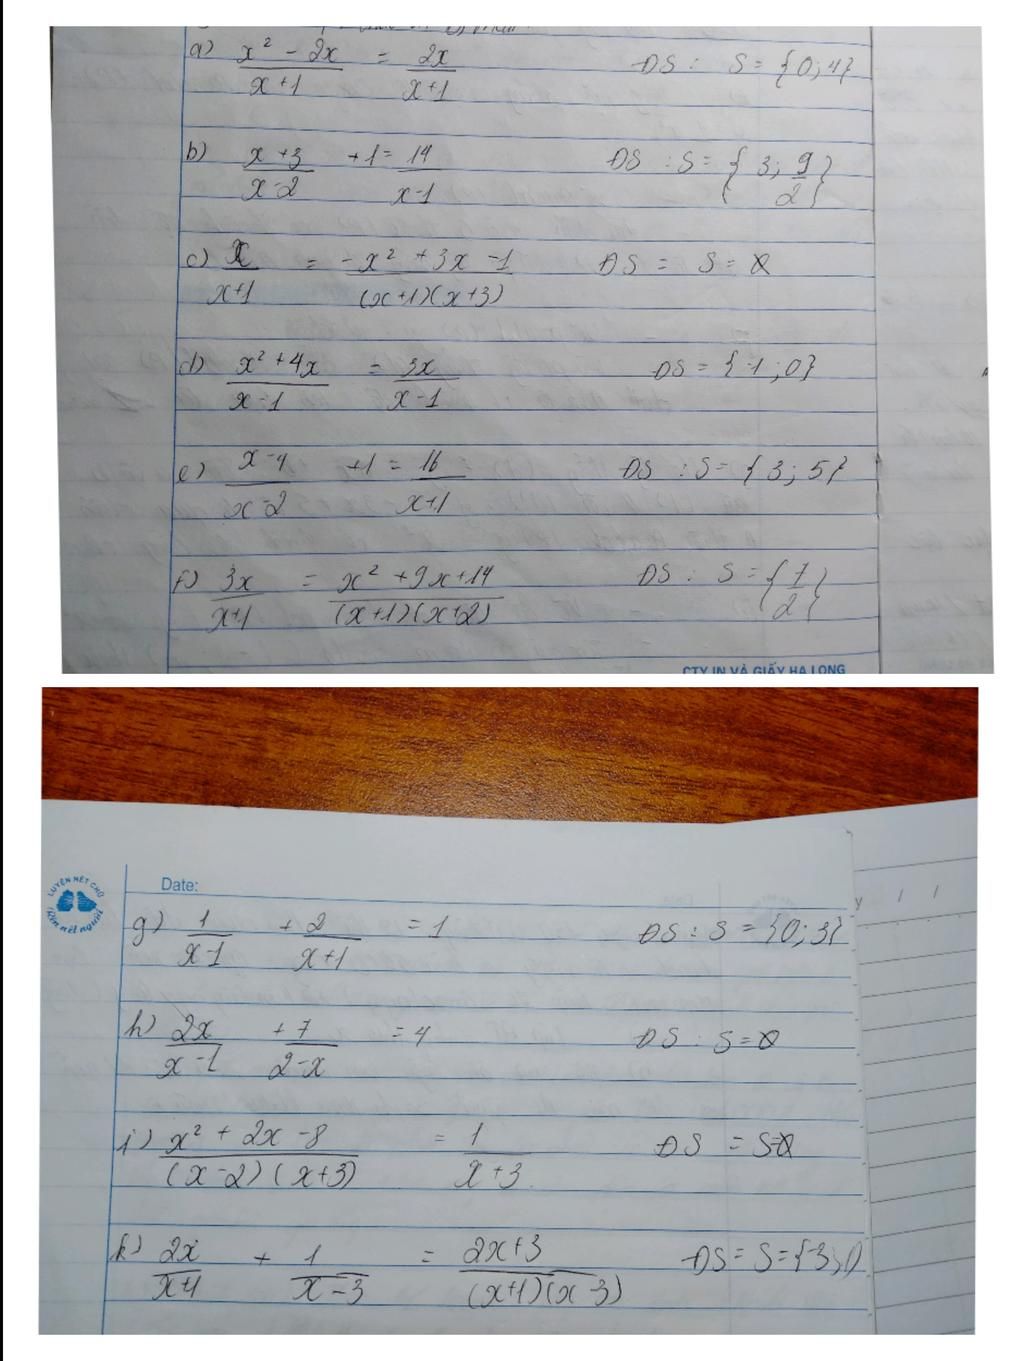 a) x² - 2x / x+1 = 2x / x+1 ĐS: S = {0; 4}
b) x+3 / x-2 + 1 = 14 / x-1 ĐS : S = {3; 9/2}
c) x / x+1 = -x² + 3x - 1 / (x+1)(x+3) ĐS = S = ∅
d) x² + 4x / x-1 = 3x / x-1 ĐS = {-1; 0}
e) x-4 / x-2 + 1 = 16 / x+1 ĐS : S = {3; 5}
f) 3x / x+1 = x² + 9x + 14 / (x+1)(x+2) ĐS : S = {7/2}
CTY IN VÀ GIẤY HẠ LONG
LUYỆN NÉT CHỮ
Rèn nết người
Date:
g) 1 / x-1 + 2 / x+1 = 1 ĐS : S = {0; 3}
h) 2x / x-1 + 7 / 2-x = 4 ĐS : S = ∅
i) x² + 2x - 8 / (x-2)(x+3) = 1 / x+3 ĐS = S=∅
k) 2x / x+1 + 1 / x-3 = 2x+3 / (x+1)(x-3) ĐS = S = {-3;